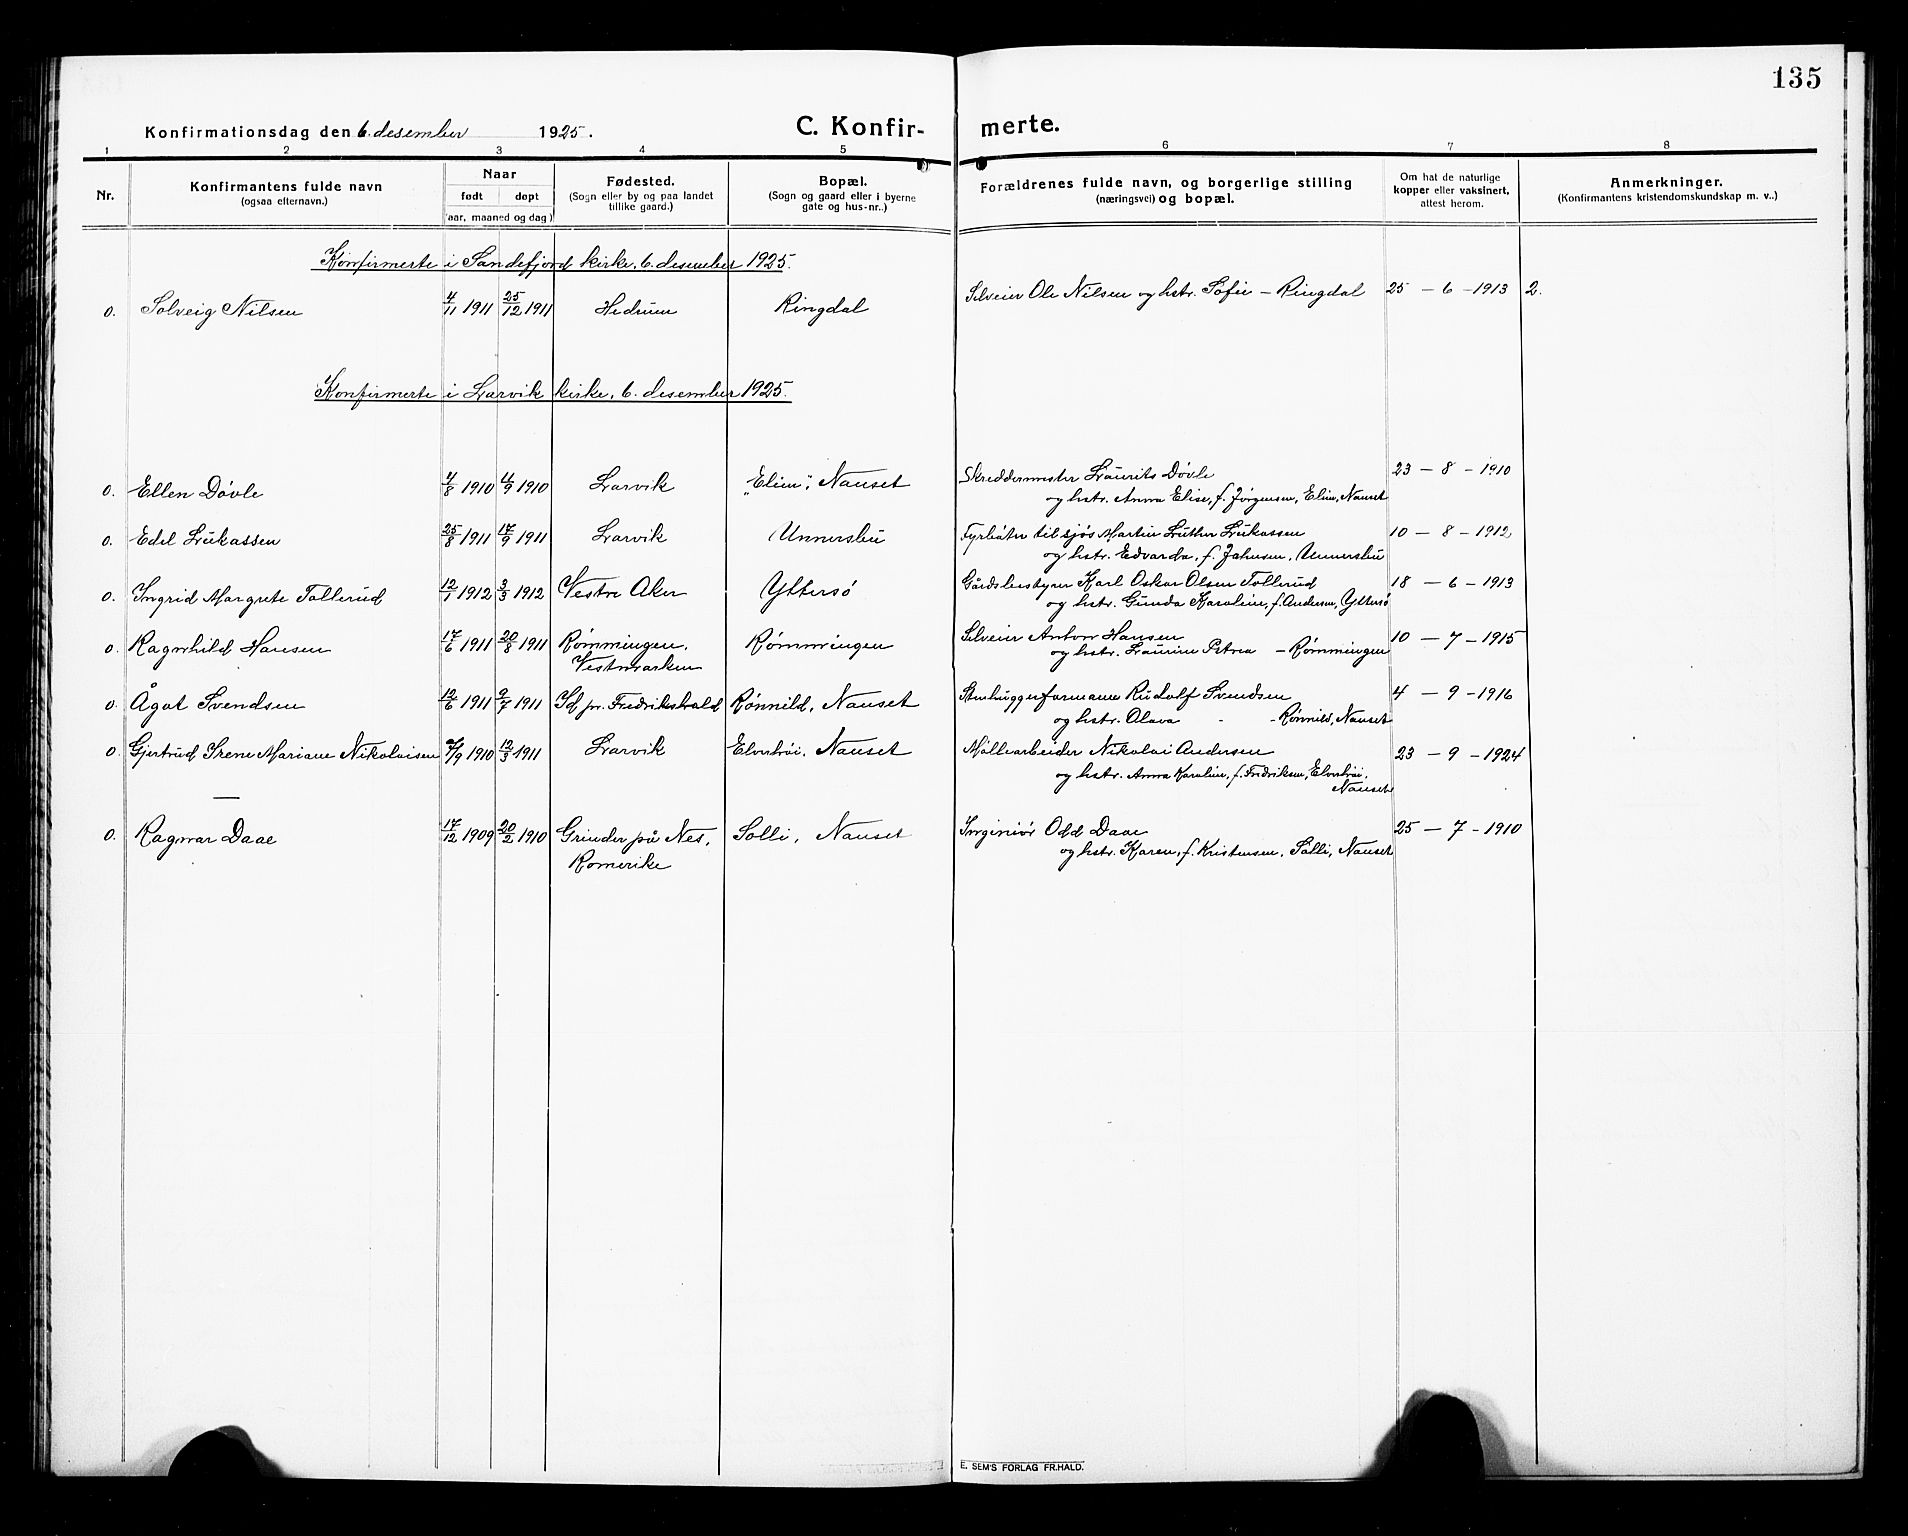 135
Konfirmationsdag den 6. desember 1925.
C. Konfir-
merte.
1 2 3 4 5 6 7 8
Nr.
Konfirmantens fulde navn
(ogsaa efternavn.)
Naar
født døpt
(aar, maaned og dag)
Fødested.
(Sogn eller by og paa landet
tillike gaard.)
Bopæl.
(Sogn og gaard eller i byerne
gate og hus-nr..)
Forældrenes fulde navn, og borgerlige stilling
(næringsvei) og bopæl.
Om hat de naturlige
kopper eller vaksinert,
attest herom.
Anmerkninger.
(Konfirmantens kristendomskundskap m. v..)
Konfirmerte i Sandefjord kirke, 6. desember 1925.
0. Solveig Nilsen 4/11 1911 25/12 1911 Hedrum Ringdal Selveier Ole Nilsen og hstr. Sofie – Ringdal 25 – 6 – 1913 2.
Konfirmerte i Larvik kirke, 6. desember 1925.
0. Ellen Døvle 4/8 1910 4/9 1910 Larvik „Elim", Nanset Skreddermester Laurits Døvle 23 – 8 – 1910
og hstr. Anna Elise, f. Jørgensen, Elim, Nanset
0. Edel Lukassen 25/8 1911 17/9 1911 Larvik Unnersbu Fyrbøter til sjøs Martin Luther Lukassen 10 – 8 – 1912
og hstr. Edvarda, f. Jahnsen, Unnersbu
0. Ingrid Margrete Tollerud 12/1 1912 3/3 1912 Vestre Aker Yttersø Gårdsbestyrer Karl Oskar Olsen Tollerud 18 – 6 – 1913
og hstr. Gunda Karoline, f. Andersen, Yttersø
0. Ragnhild Hansen 17/6 1911 20/8 1911 Rømmingen, Rømmingen Selveier Anton Hansen 10 – 7 – 1915
Vestmarken og hstr. Laurine Petrea – Rømmingen
0. Ågot Svendsen 12/6 1911 9/7 1911 Id pr. Fredrikshald Rønnild, Nanset Stenhuggerformann Rudolf Svendsen 4 – 9 – 1916
og hstr. Olava - - Rønnild, Nanset
0. Gjertrud Irene Mariane Nikolaisen /9 1910 12/3 1911 Larvik Elvebrøi, Nanset Møllearbeider Nikolai Andersen 23 – 9 – 1924
og hstr. Anna Karoline, f. Fredriksen,
Nanset
—
0. Ragnar Daae 17/12 1909 20/2 1910 Grinder på Nes, Solli, Nanset Ingeniør Odd Daae 25 – 7 – 1910
Romerike og hstr. Karen, f. Kristensen, Solli, Nanset
E. SEM'S FORLAG FR.HALD.